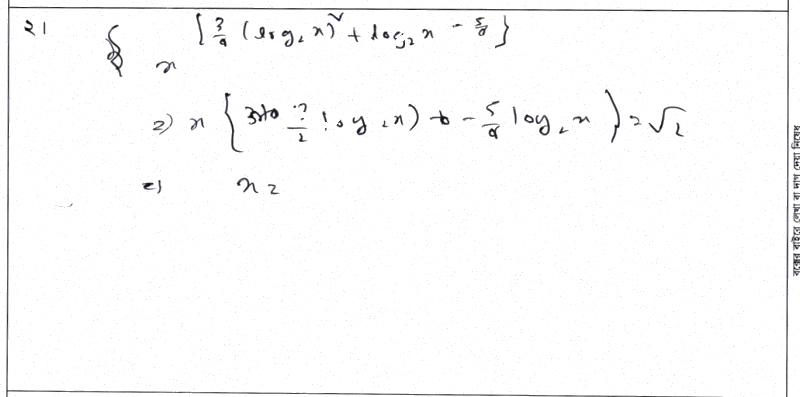 ২১
x^{3/4 (log₂ x)² + log₂ x - 5/4}
⇒ x { log₂ x) - 5/4 log₂ x } = √2
⇒ x =
বক্সের বাইরে লেখা বা দাগ দেয়া নিষেধ